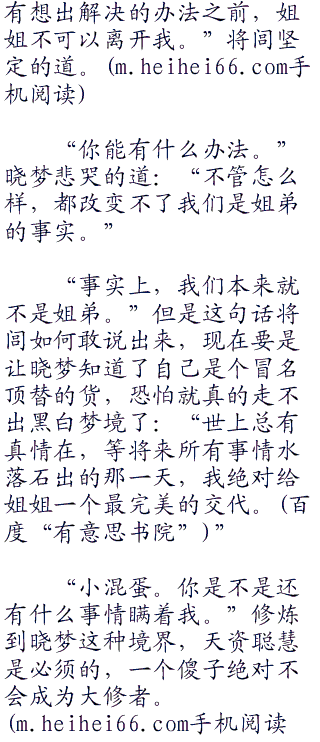 有想出解决的办法之前，姐
姐不可以离开我。”将闾坚
定的道。(m.heihei66.com手
机阅读)
“你能有什么办法。”
晓梦悲哭的道：“不管怎么
样，都改变不了我们是姐弟
的事实。”
“事实上，我们本来就
不是姐弟。”但是这句话将
闾如何敢说出来，现在要是
让晓梦知道了自己是个冒名
顶替的货，恐怕就真的走不
出黑白梦境了：“世上总有
真情在，等将来所有事情水
落石出的那一天，我绝对给
姐姐一个最完美的交代。(百
度“有意思书院”)”
“小混蛋。你是不是还
有什么事情瞒着我。”修炼
到晓梦这种境界，天资聪慧
是必须的，一个傻子绝对不
会成为大修者。
(m.heihei66.com手机阅读